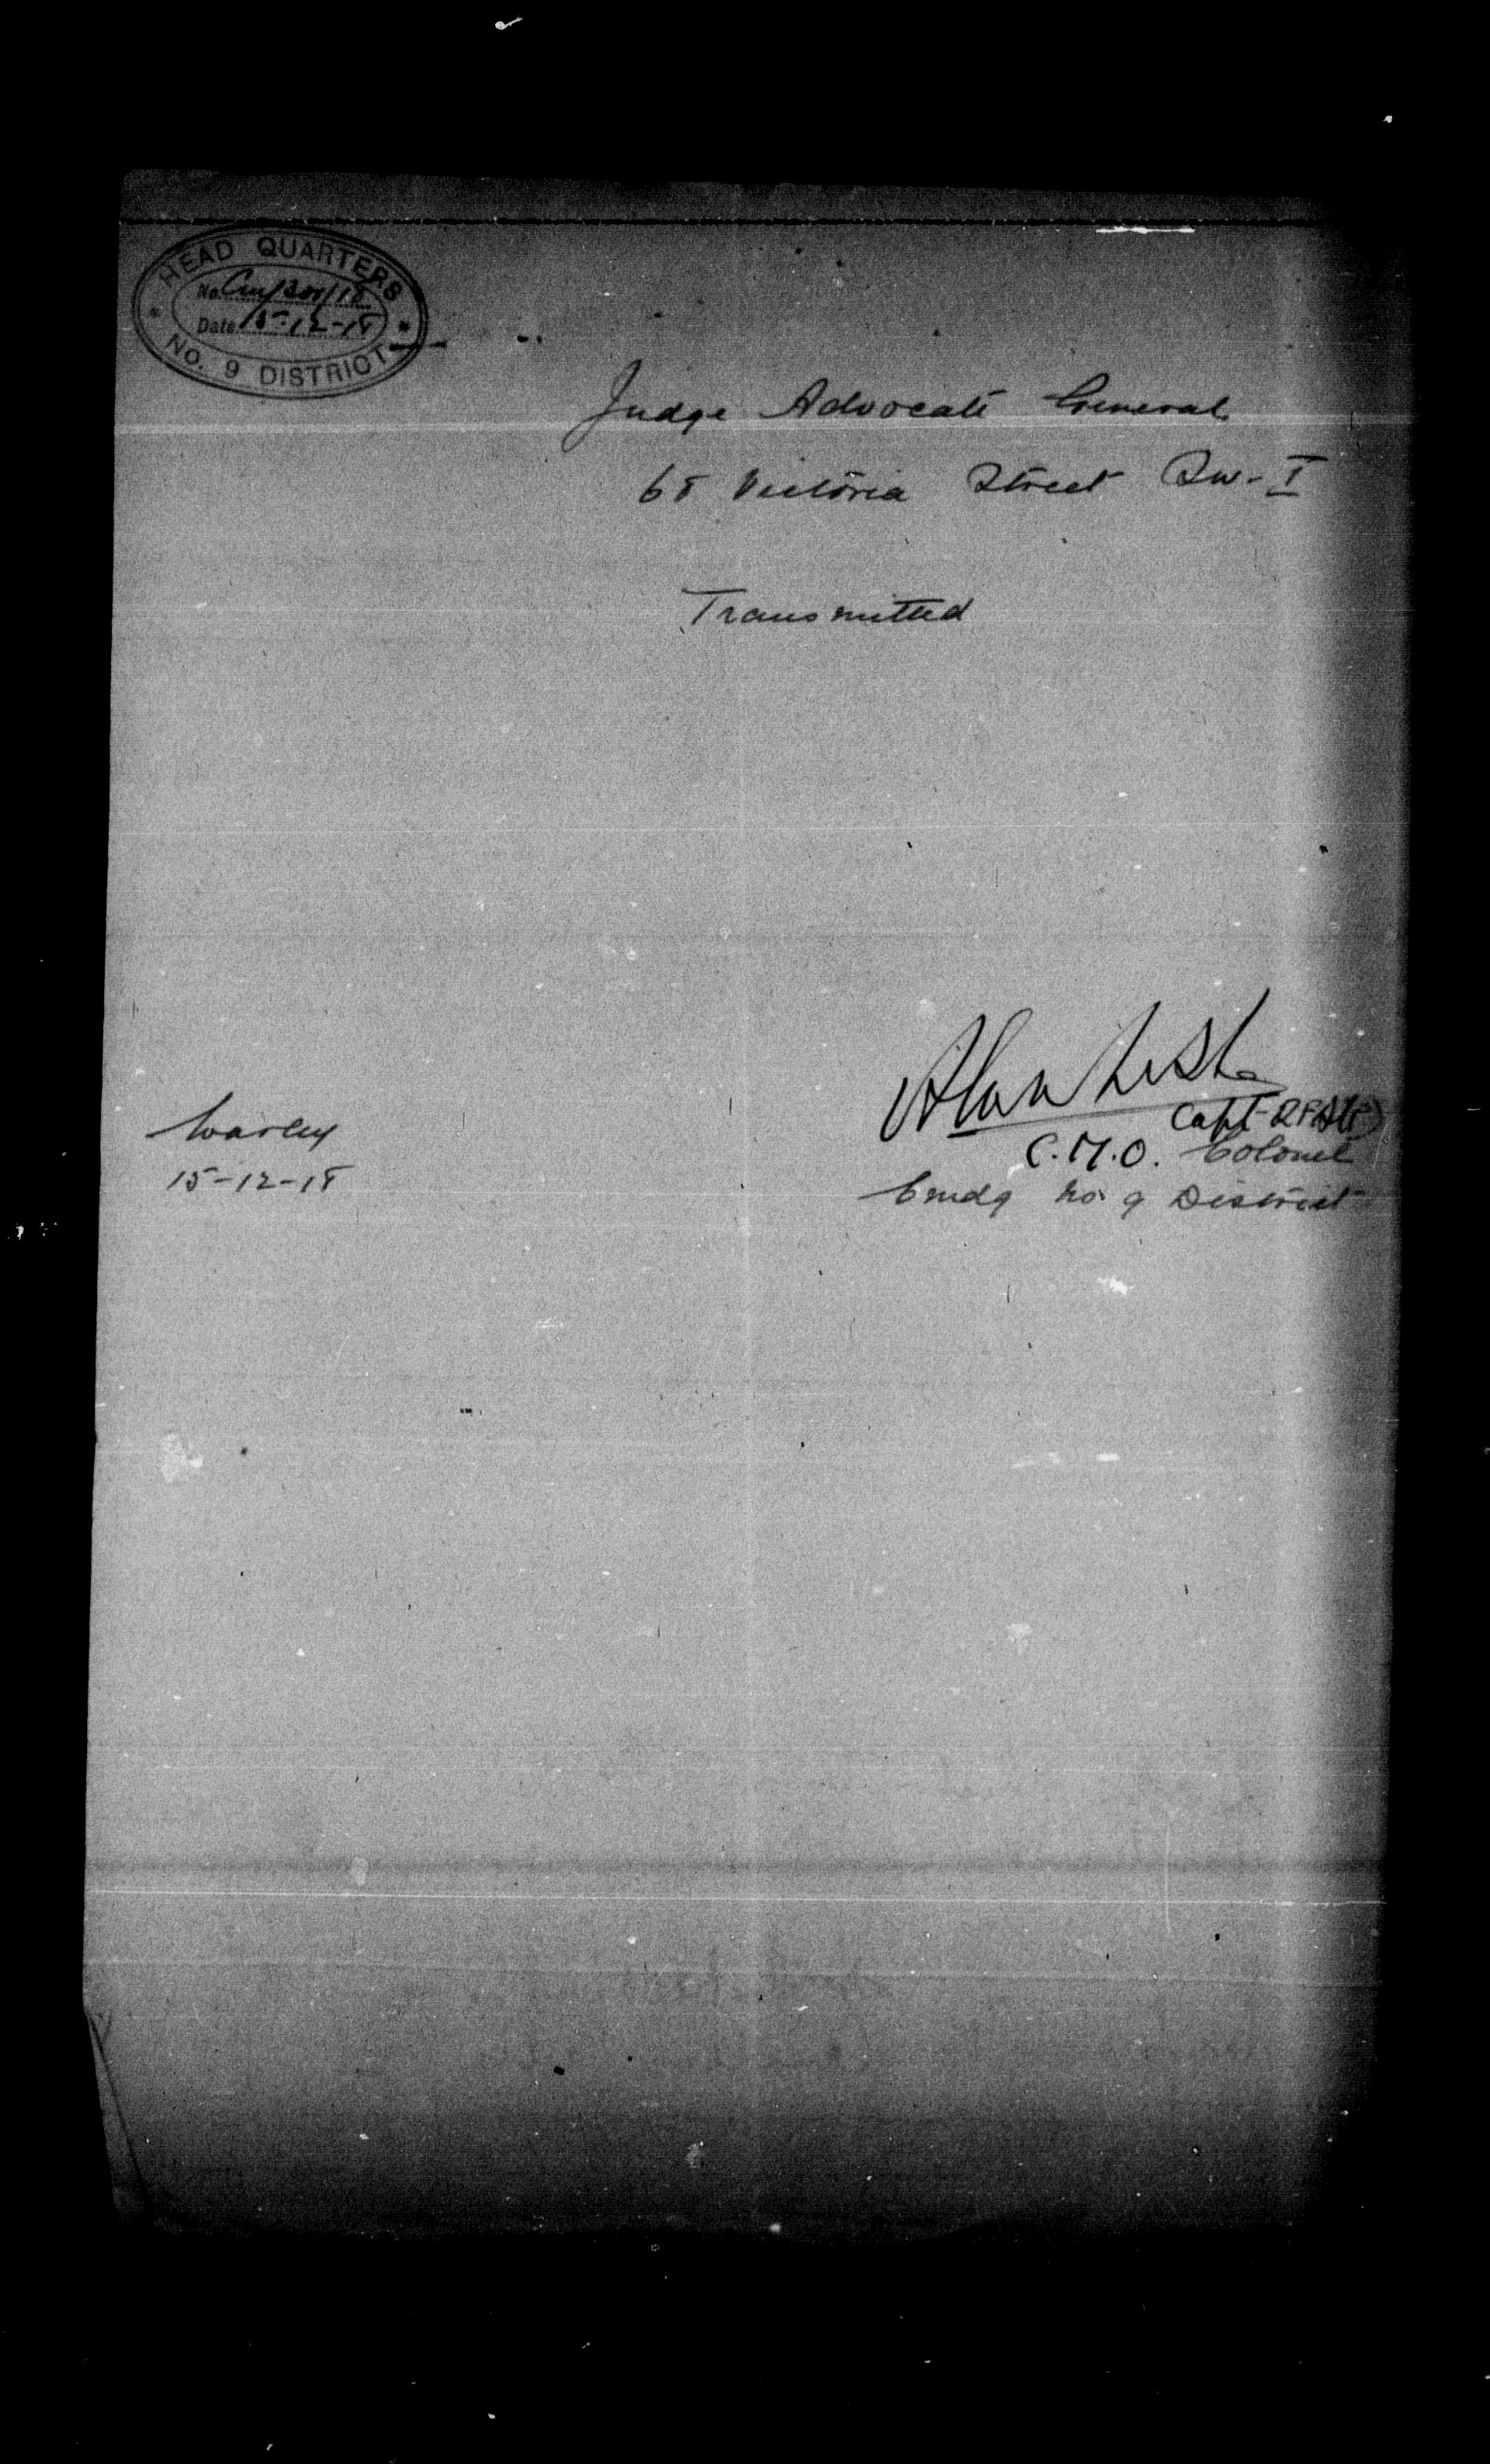 HEAD QUARTERS
No.
Date 15-12-18
NO. 9 DISTRICT
Judge Advocate General
68 Victoria Street SW-I
Transmitted
Warley
15-12-18
Capt
C.M.O. Colonel
Cmdg No 9 District